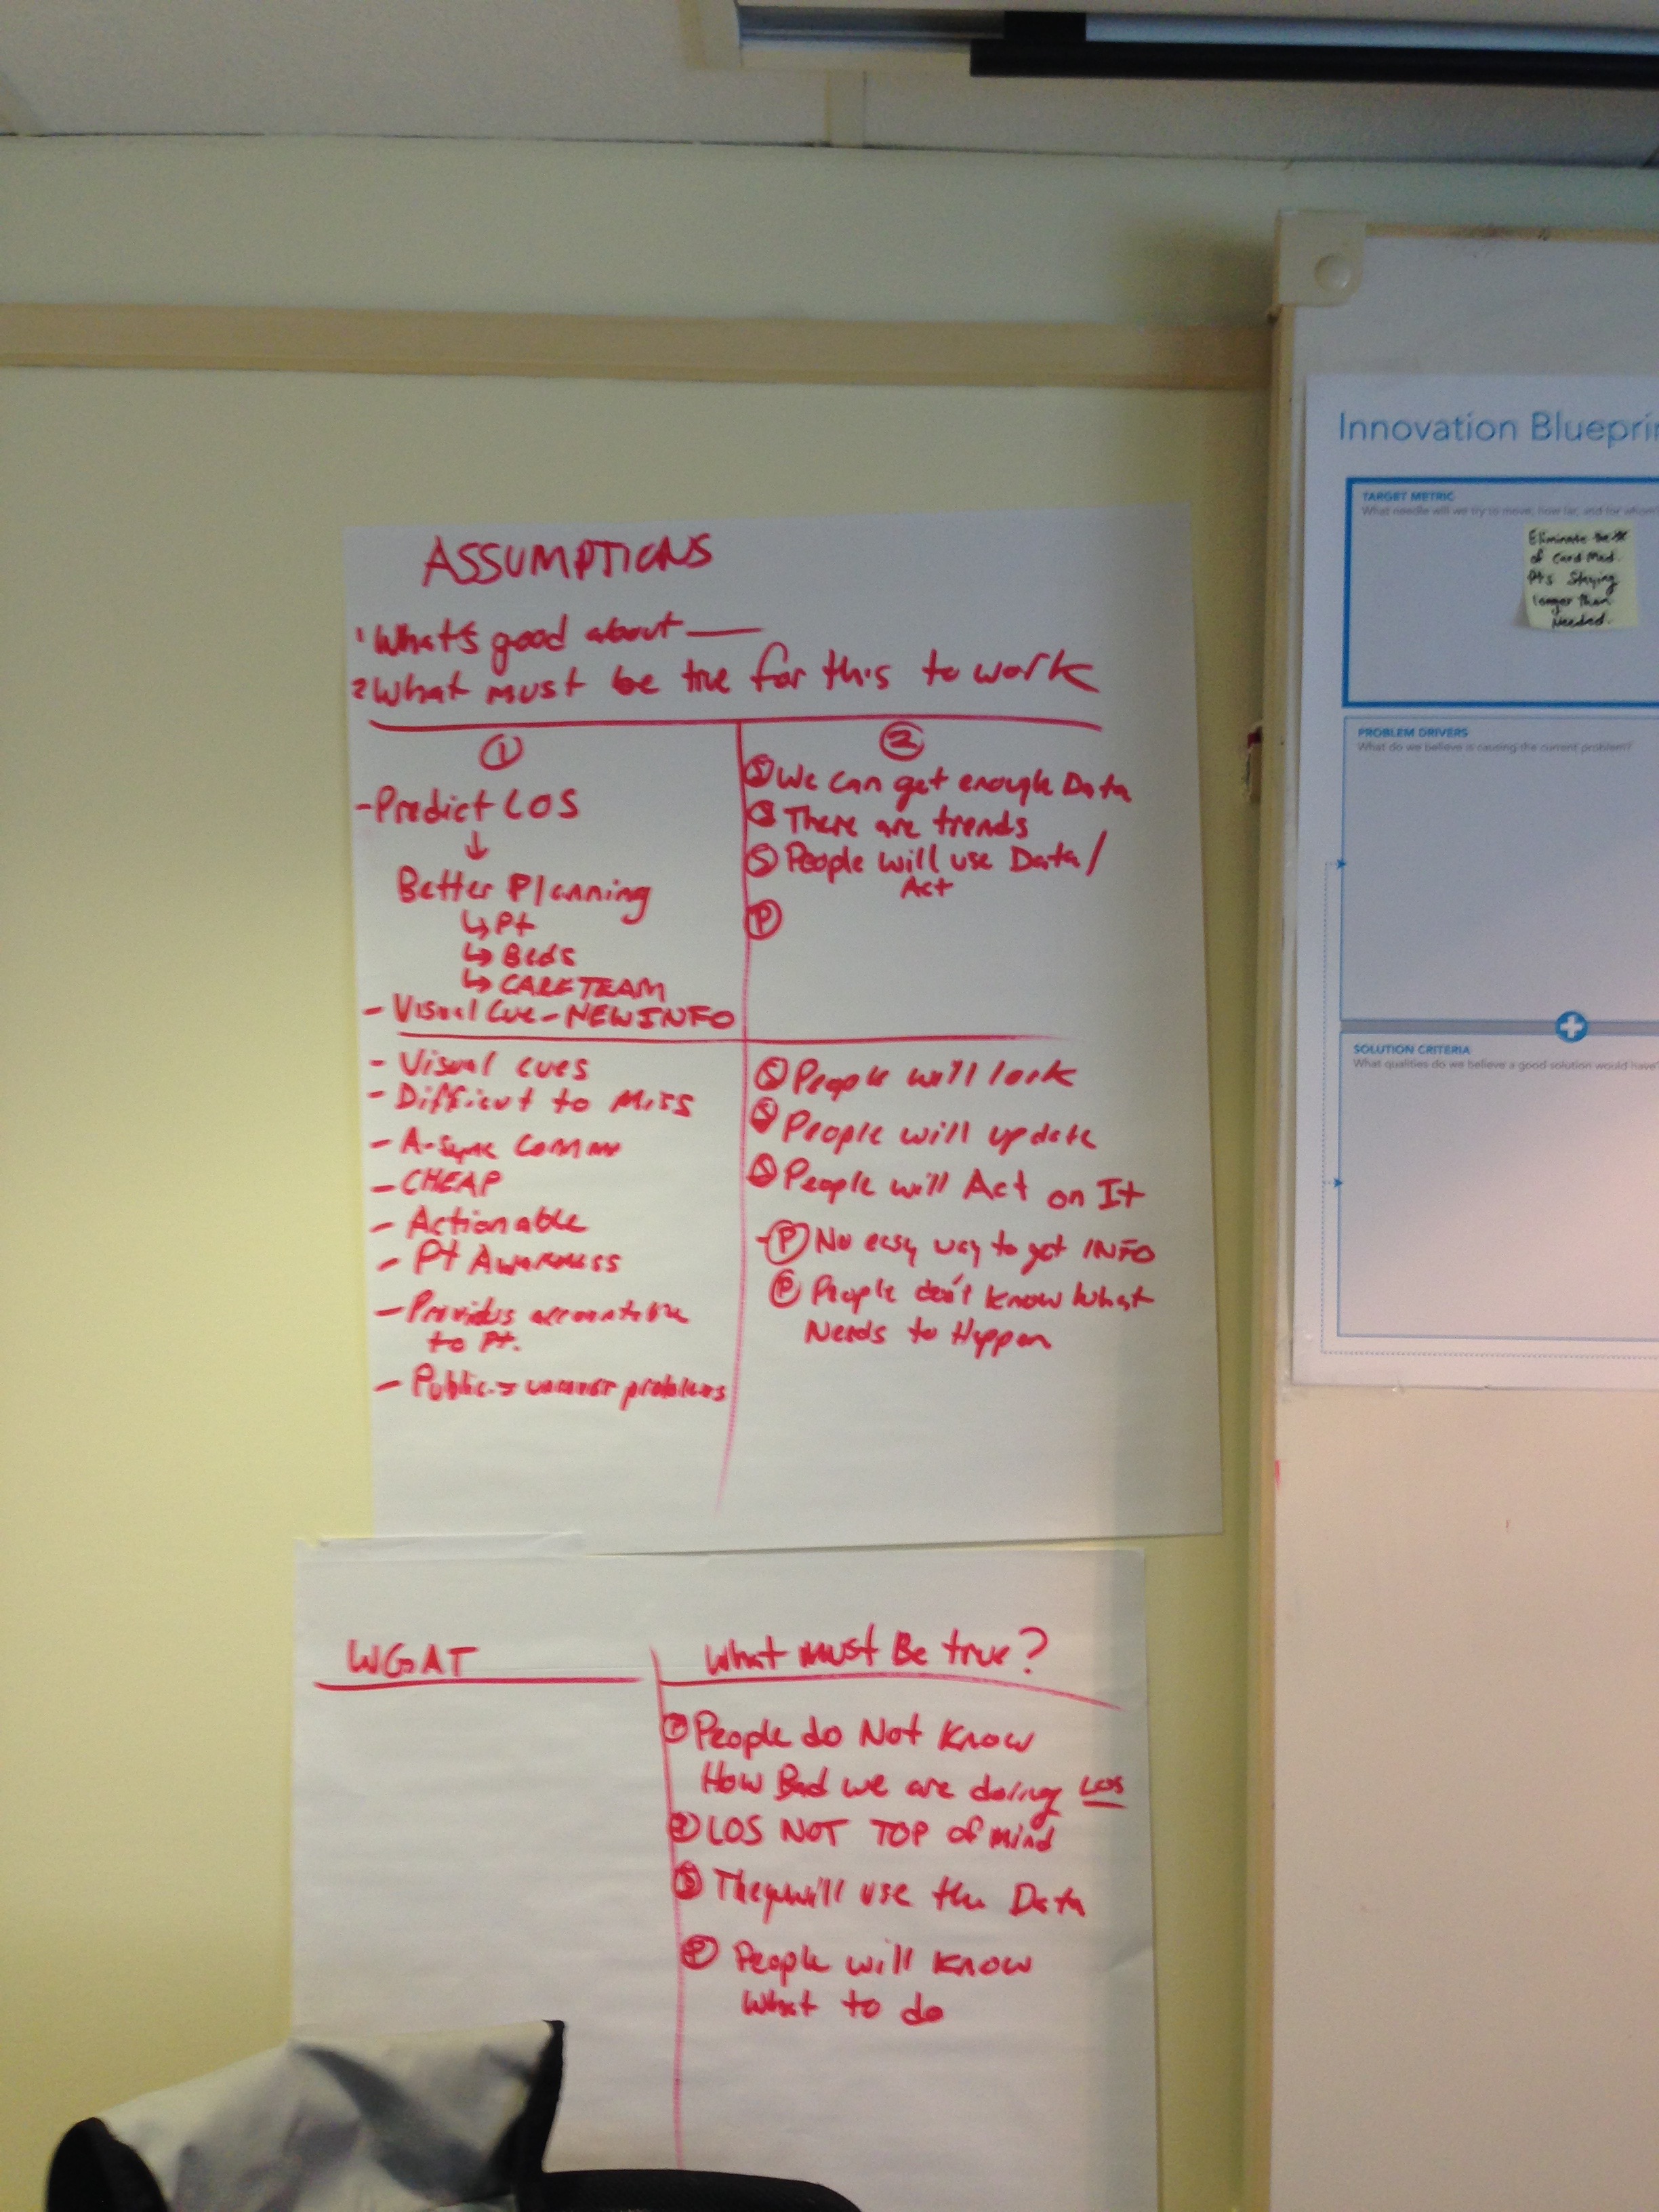 ASSUMPTIONS
1 What's good about ___
2 What must be true for this to work
①
- Predict LOS
↓
Better Planning
↳ Pt
↳ Beds
↳ CARE TEAM
- Visual Cue - NEW INFO
②
Ⓢ We can get enough Data
Ⓢ There are trends
Ⓢ People will use Data /
Act
Ⓟ
- Visual cues
- Difficult to Miss
- A-sync Comm
- CHEAP
- Actionable
- Pt Awareness
- Provides
to Pt.
- Public → uncover problems
Ⓢ People will look
Ⓢ People will update
Ⓢ People will Act on It
Ⓟ No easy way to get INFO
Ⓟ People don't know What
Needs to Happen
WGAT
What Must Be true?
Ⓟ People do Not Know
How Bad we are doing LOS
Ⓟ LOS NOT TOP of mind
Ⓢ They will use the Data
People will know
What to do
Innovation Bluepri
TARGET METRIC
What needle will we try to move, how far, and for whom?
Eliminate the #
of Card Med.
Pts Staying
longer than
Needed.
PROBLEM DRIVERS
What do we believe is causing the current problem?
SOLUTION CRITERIA
What qualities do we believe a good solution would have?